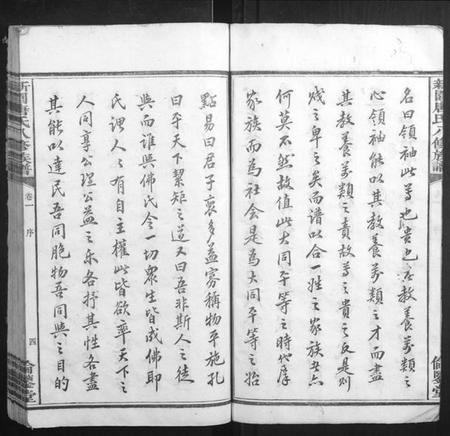 名曰領袖此尊也貴也若教養萬類之
心領袖能以其教養萬類之才而盡
其教養萬類之責故尊之貴之反是則
殘之卑之矣而譜以合一姓之家族共六
何莫不然故值此大同平等之時代序
家族而為社會是為大同平等之始
點易曰君子裒多益寡稱物平施孔
曰平天下絜矩之道又曰吾非斯人之徒
與而誰與佛氏令一切衆生皆成佛耶
氏謂人人有自主權此皆欲率天下之
人同享公理公益之乐各抒其性各盡
其能以達民吾同胞物吾同與之目的
新圖唐氏八修族譜
卷一 序
四
倫鑒堂